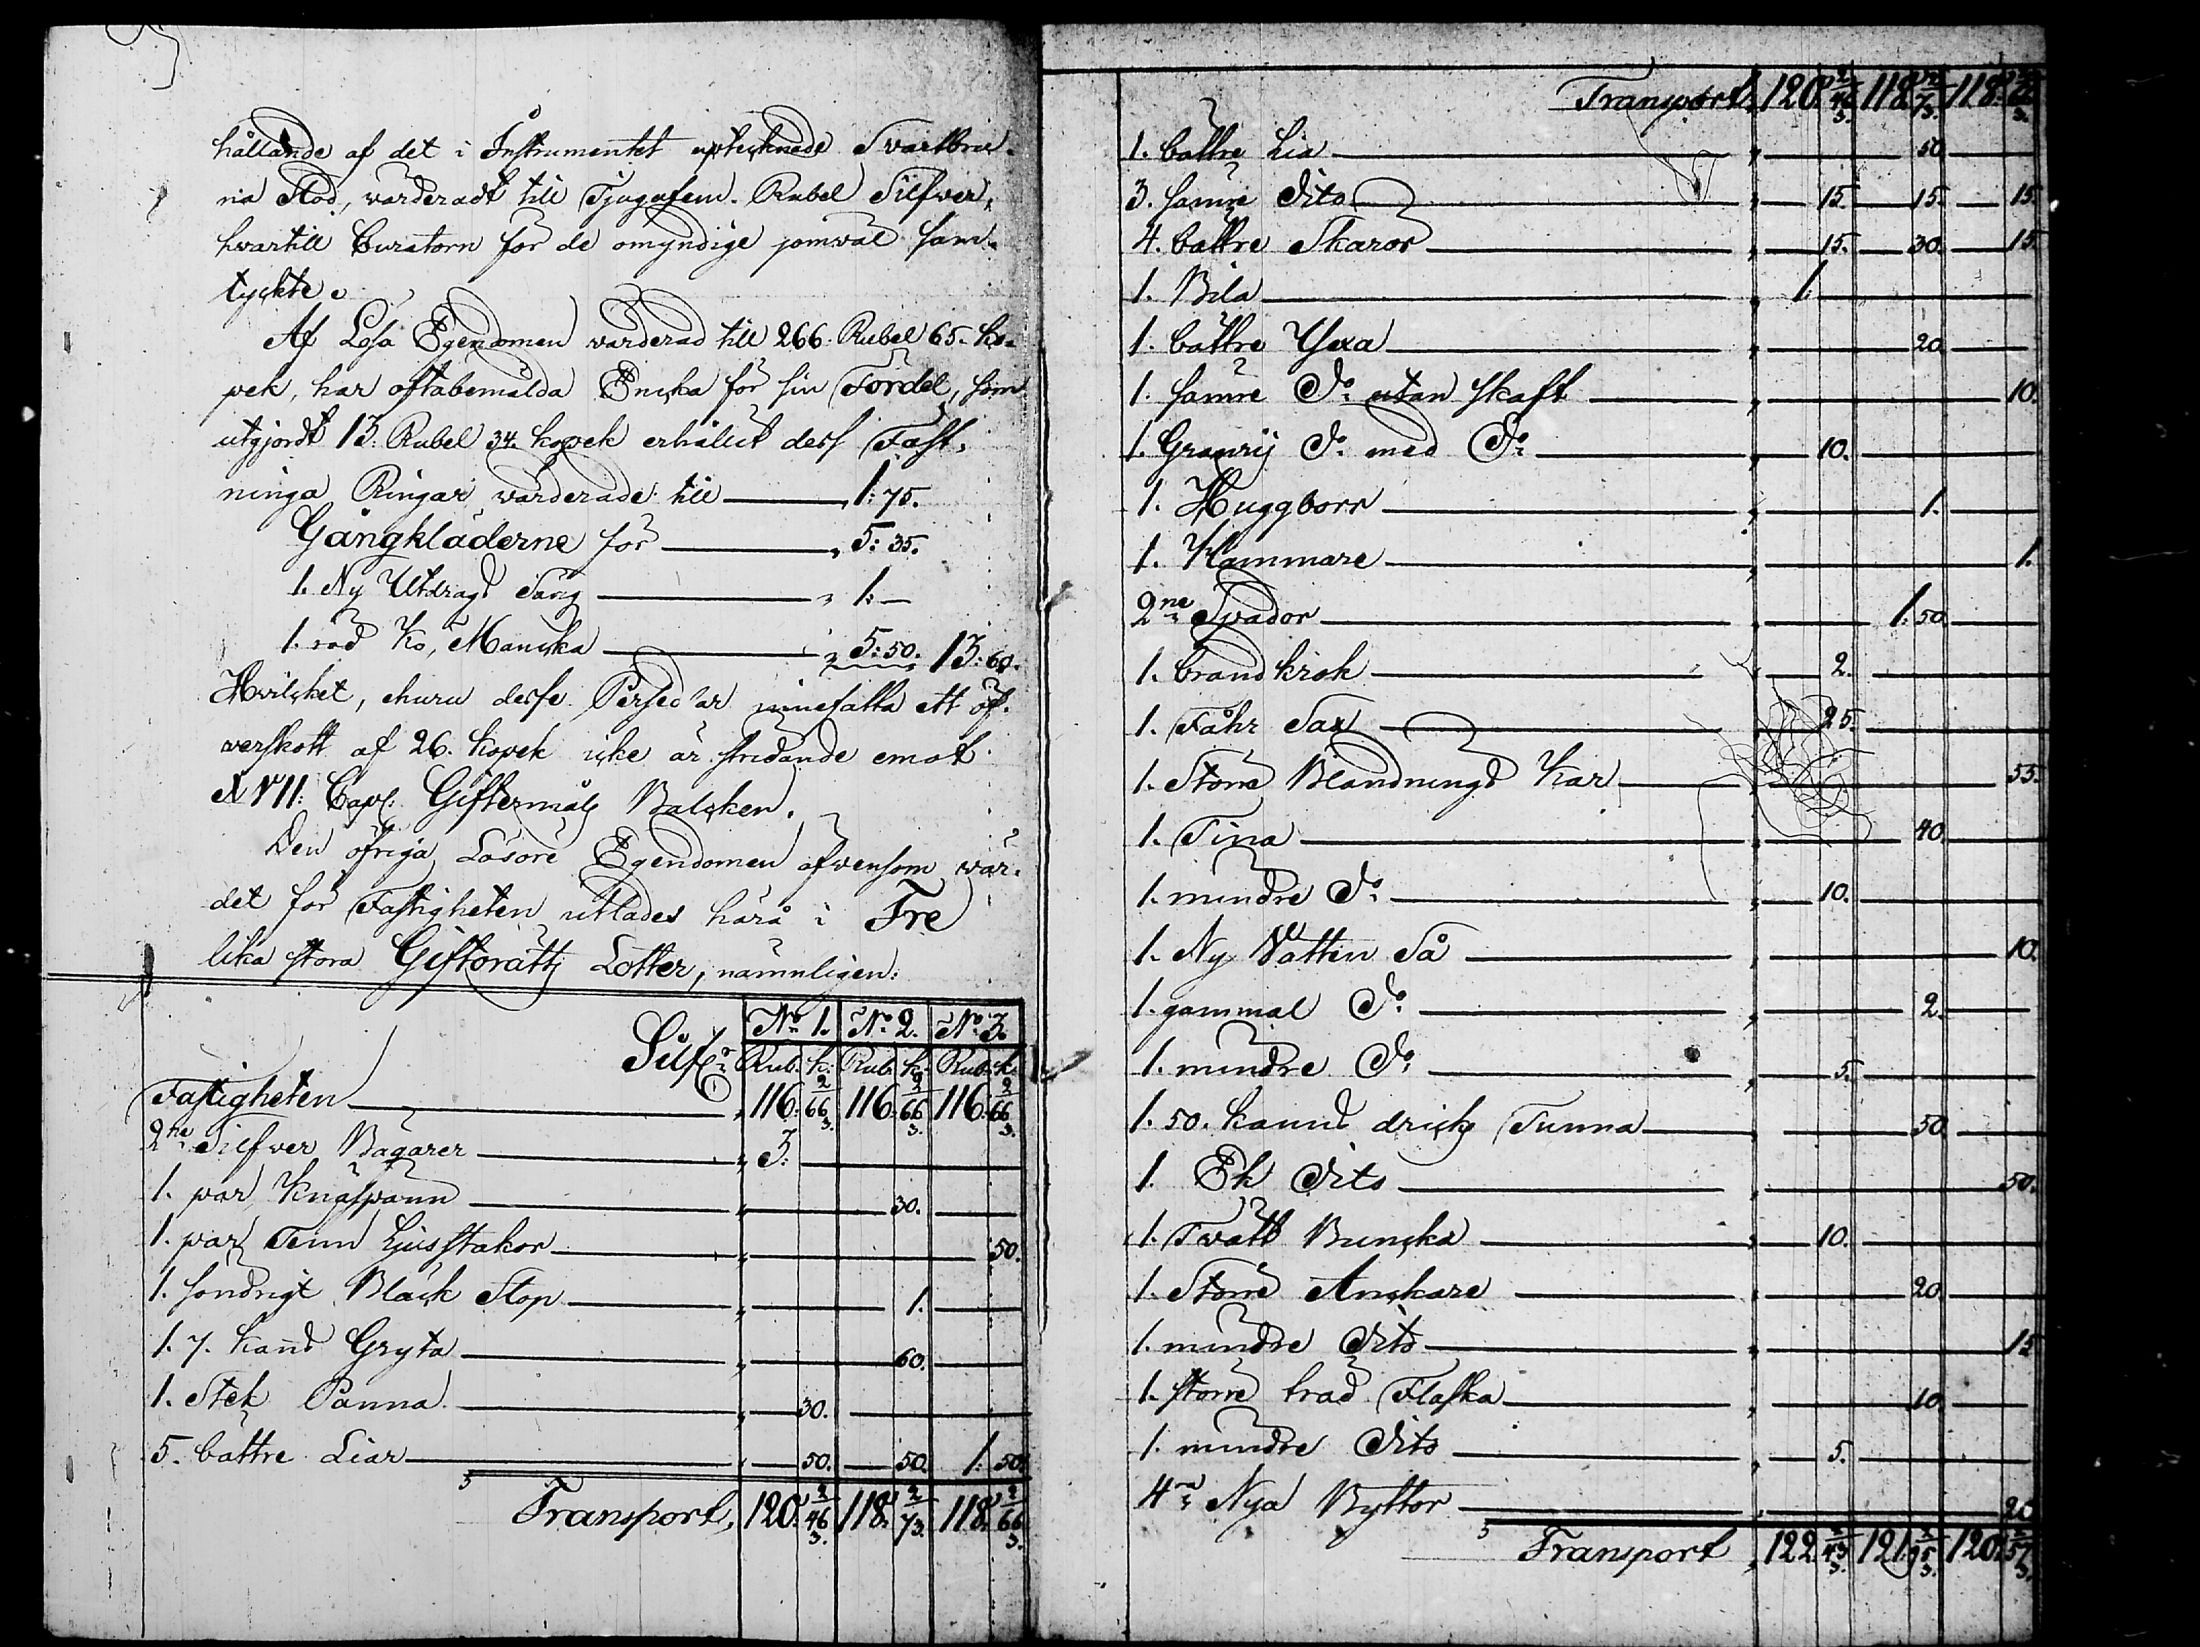 hållande af det i Instrumentet uptecknade Svartbru-
na Stod, värderadt till Tjugufem Rubel Silfver,
hvartill Curatorn för de omyndige jemväl sam-
tyckte.
Af Lösa Egendomen värderad till 266 Rubel 65 ko-
pek, har oftabemälda Encka för sin Fördel, som
utgjordt 13. Rubel 34. kopek erhållit dess Fäst-
ninga Ringar värderade till 1: 75.
Gångkläderne för 5: 35.
1. Ny Utdrags Säng 1: —
1. röd Ko, Mancka 5: 50. 13: 60.
Hvilcket, ehuru desse Persedlar innefatta ett öf-
verskott af 26. kopek icke är stridande emot
XVII: Cap: Giftermåls Balcken.
Den öfriga Lösöre Egendomen äfvensom vär-
det för Fastigheten utlades härå i Tre
lika stora Giftorätts Lotter, nämnligen:
Silfr No 1. No 2. No 3.
Rub. k. Rub. k. Rub. k.
Fastigheten 116. 66 2/3. 116. 66 2/3. 116. 66 2/3.
2ne Silfver Bägarer 3.
1. par Knäspänn 30.
1. par Tenn Ljusstakor 50.
1. söndrigt Bläck Stop 1.
1. 7. kands Gryta 60.
1. Stek Panna 30.
5. bättre Liar 50. 50. 1. 50.
Transport, 120. 46 2/3. 118. 73 2/3. 118. 66 2/3.
Transport, 120. 46 2/3. 118. 73 2/3. 118. 66 2/3.
1. bättre Lia 50
3. sämre dito 15. 15. 15.
4. bättre Skäror 15. 30. 15.
1. Bila 1.
1. bättre Yxa 20
1. sämre do utan skaft 10.
1. do med do 10.
1. Huggborr 1.
1. Hammare 1.
2ne Spador 1. 50
1. brandkrok 2.
1. Fåhr Sax 25.
1. Större Blandnings Kar 55.
1. Tina 40.
1. mindre do 10.
1. Ny Vatten Så 10.
1. gammal do 2.
1. mindre do 5.
1. 50. kanns dricks Tunna 50
1. Ek dito 50.
1. Tvätt Buncka 10.
1. Större Anckare 20
1. mindre dito 15
1. större träd Flaska 10
1. mindre dito 5.
4ra Nya Byttor 20
Transport 122. 43 2/3. 121. 2/3. 120. 57 2/3.